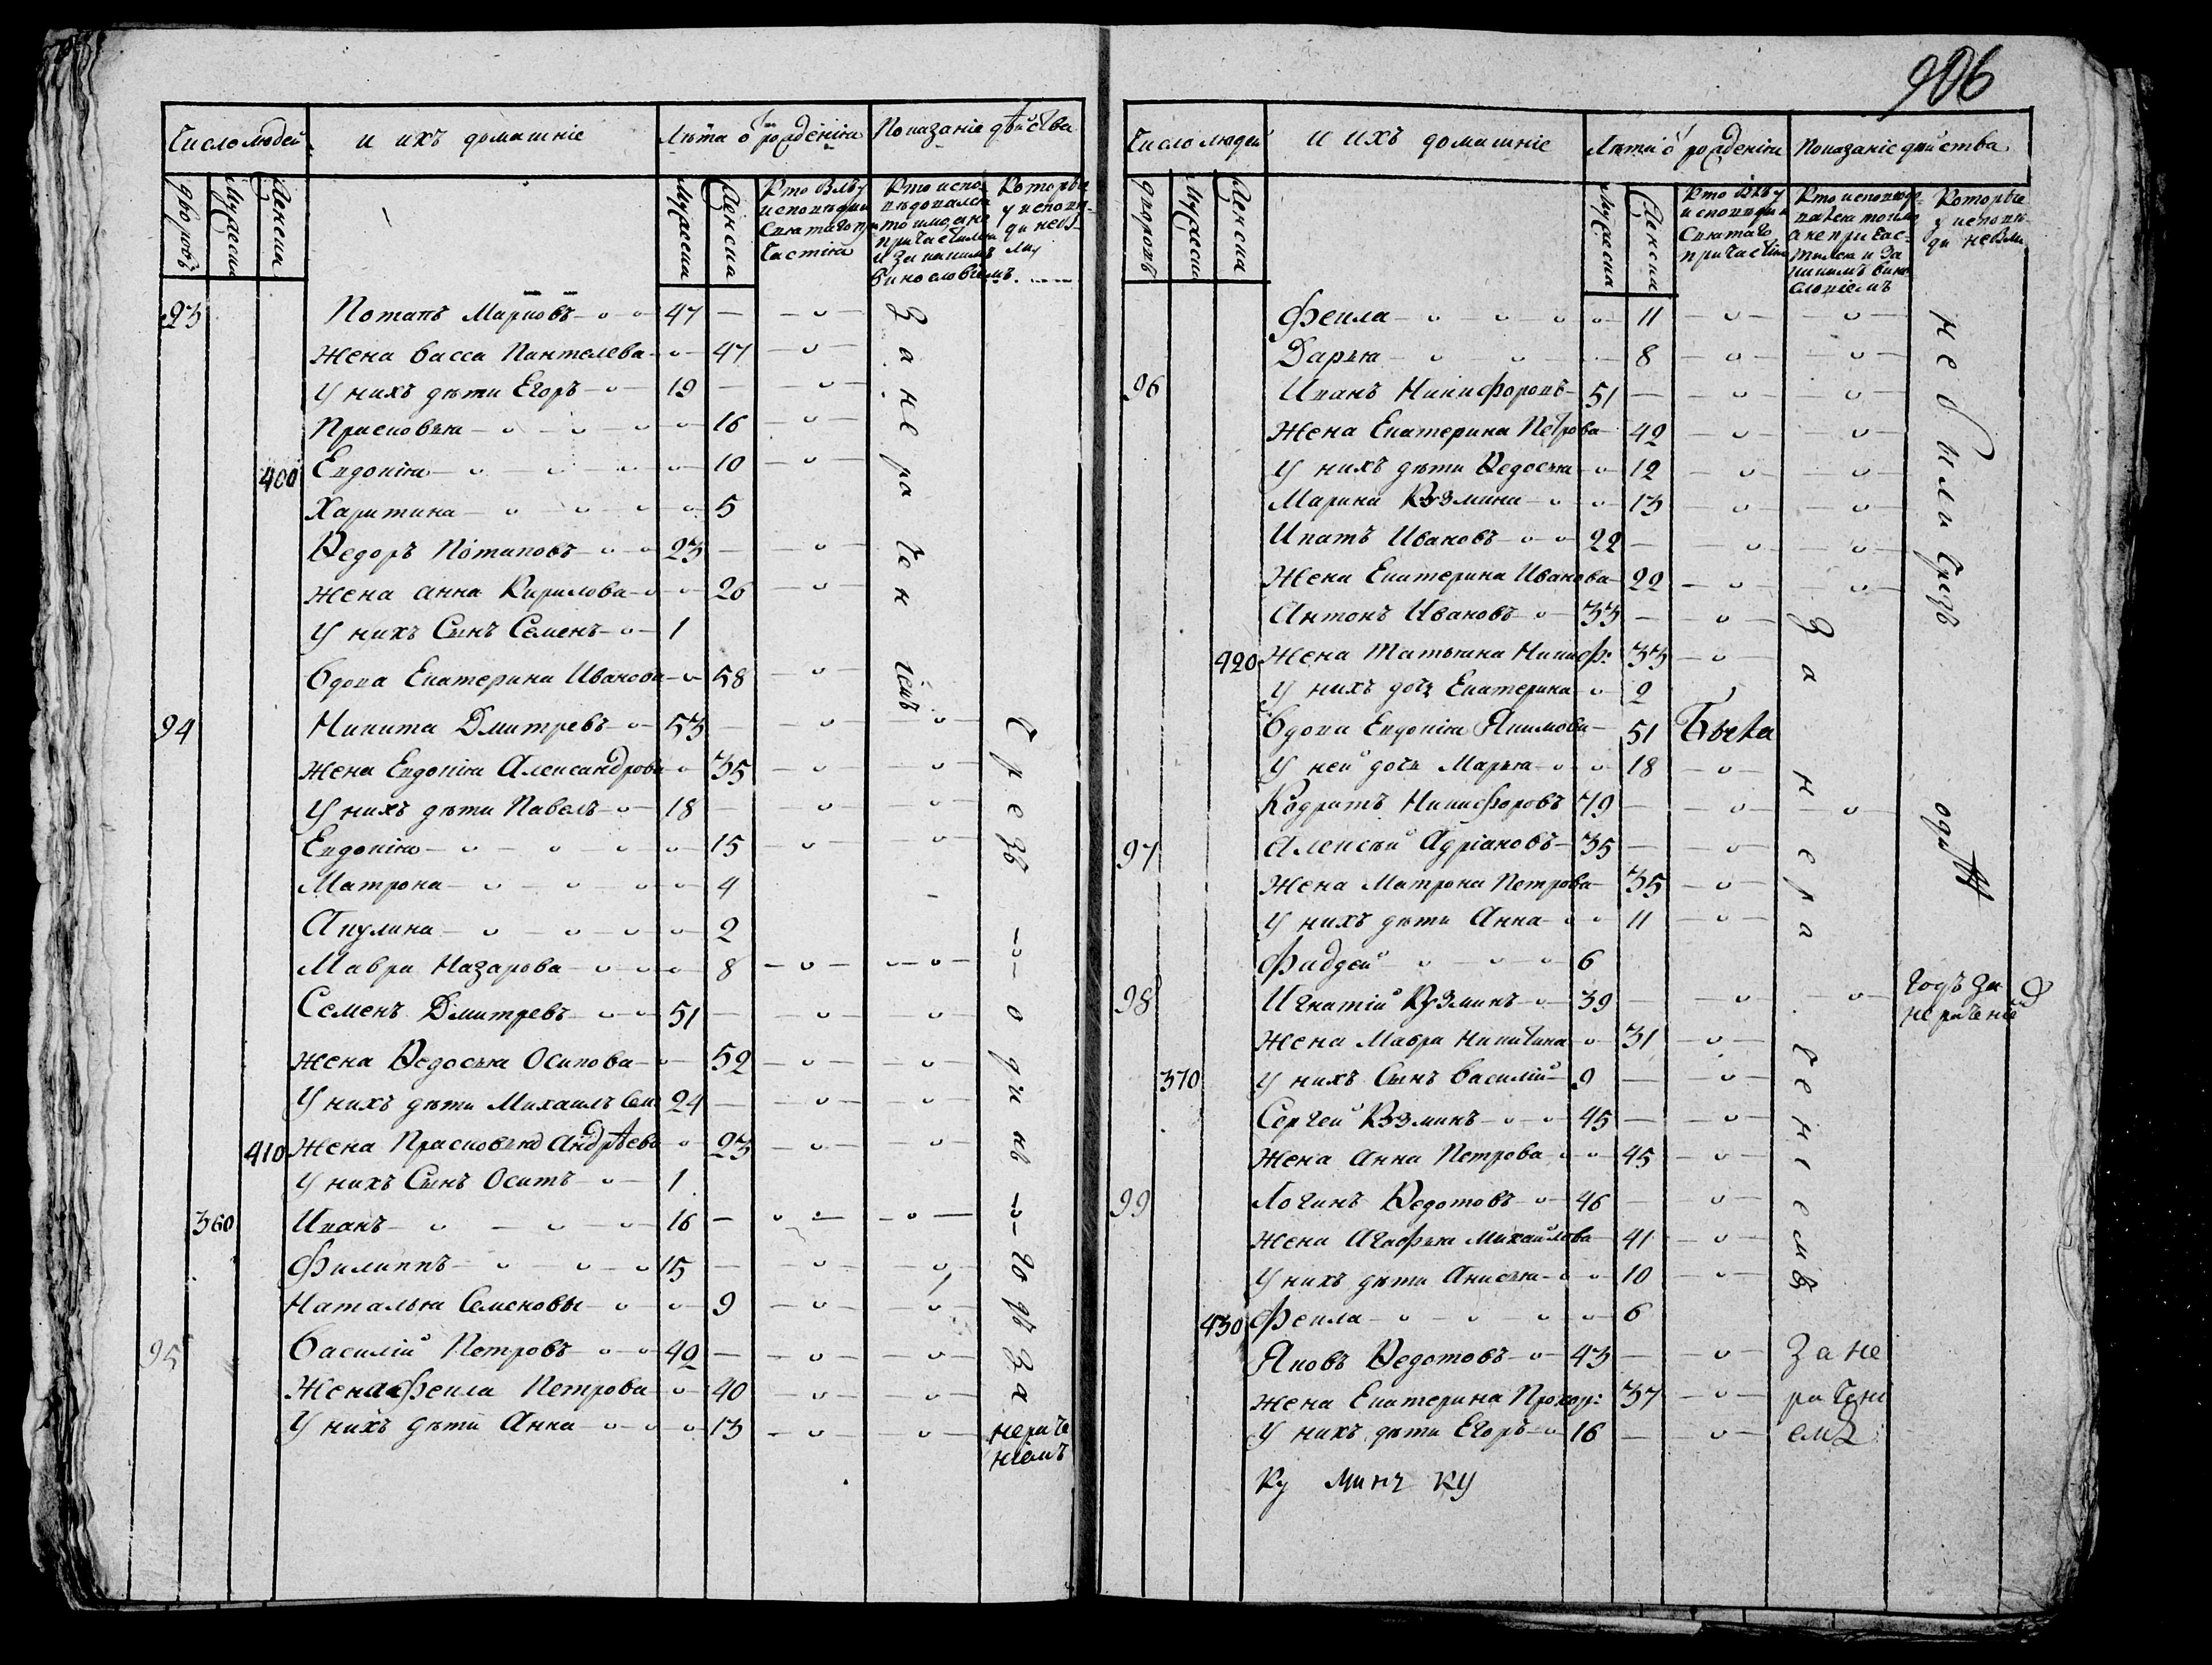 906
Число людей и ихъ домашніе Лѣта ѿ рожденія Показаніе дѣйства
дворовъ Мужеска Женска Мужеска Женска Кто былъ у исповѣди и святаго причастія Кто исповѣдовался токмо, а не причастился и за какимъ винословіемъ Которые у исповѣди не были
93 Потапъ Марковъ 47
Жена Васса Пантелева 47
У нихъ дѣти Егоръ 19
Прасковья 16
400 Евдокія 10
Харитина 5
Ѳедоръ Потаповъ 23
Жена Анна Кирилова 26
У нихъ Сынъ Семенъ 1
Вдова Екатерина Иванова 58
За нераченіемъ
94 Никита Дмитревъ 53
Жена Евдокія Александрова 35
У нихъ дѣти Павелъ 18
Евдокія 15
Матрона 4
Акулина 2
Мавра Назарова 8
Семенъ Дмитревъ 51
Жена Ѳедосья Осипова 52
У нихъ дѣти Михаилъ Сем 24
410 Жена Прасковья Андрѣева 23
У нихъ Сынъ Осипъ 1
360 Иванъ 16
Филиппъ 15
Наталья Семеновы 9
95 Василій Петровъ 40
Жена Фекла Петрова 40
У нихъ дѣти Анна 13
Срезъ одинъ годъ за нераченіемъ
Число людей и ихъ домашніе Лѣта ѿ рожденія Показаніе дѣйства
дворовъ Мужеска Женска Мужеска Женска Кто былъ у исповѣди и святаго причастія Кто исповѣдовался токмо а не причастился и за какимъ винословіемъ Которые у исповѣди не были
Фекла 11
Дарья 8
96 Иванъ Никифоровъ 51
Жена Екатерина Петрова 42
У нихъ дѣти Ѳедосья 12
Марина Кузмина 13
Ипатъ Ивановъ 22
Жена Екатерина Иванова 22
Антонъ Ивановъ 33
420 Жена Татьяна Никиф: 33
У нихъ дочь Екатерина 2
Вдова Евдокія Якимова 51 Была
У ней дочь Марья 18
Кодратъ Никифоровъ 79
97 Алексѣй Адріановъ 35
Жена Матрона Петрова 35
У нихъ дѣти Анна 11
Фаддей 6
98 Игнатій Кузминъ 39
Жена Мавра Никитина 31
370 У нихъ Сынъ Василій 9
Сергей Кузминъ 45
Жена Анна Петрова 45
99 Логинъ Ѳедотовъ 46
Жена Агафья Михайлова 41
У нихъ дѣти Анисья 10
430 Фекла 6
Яковъ Ѳедотовъ 43 За не
Жена Екатерина Прохор: 37 рачені
У нихъ дѣти Егоръ 16 емъ
За нераченіемъ
не были Срезъ
годъ за нераченіе
Ку минъ ку